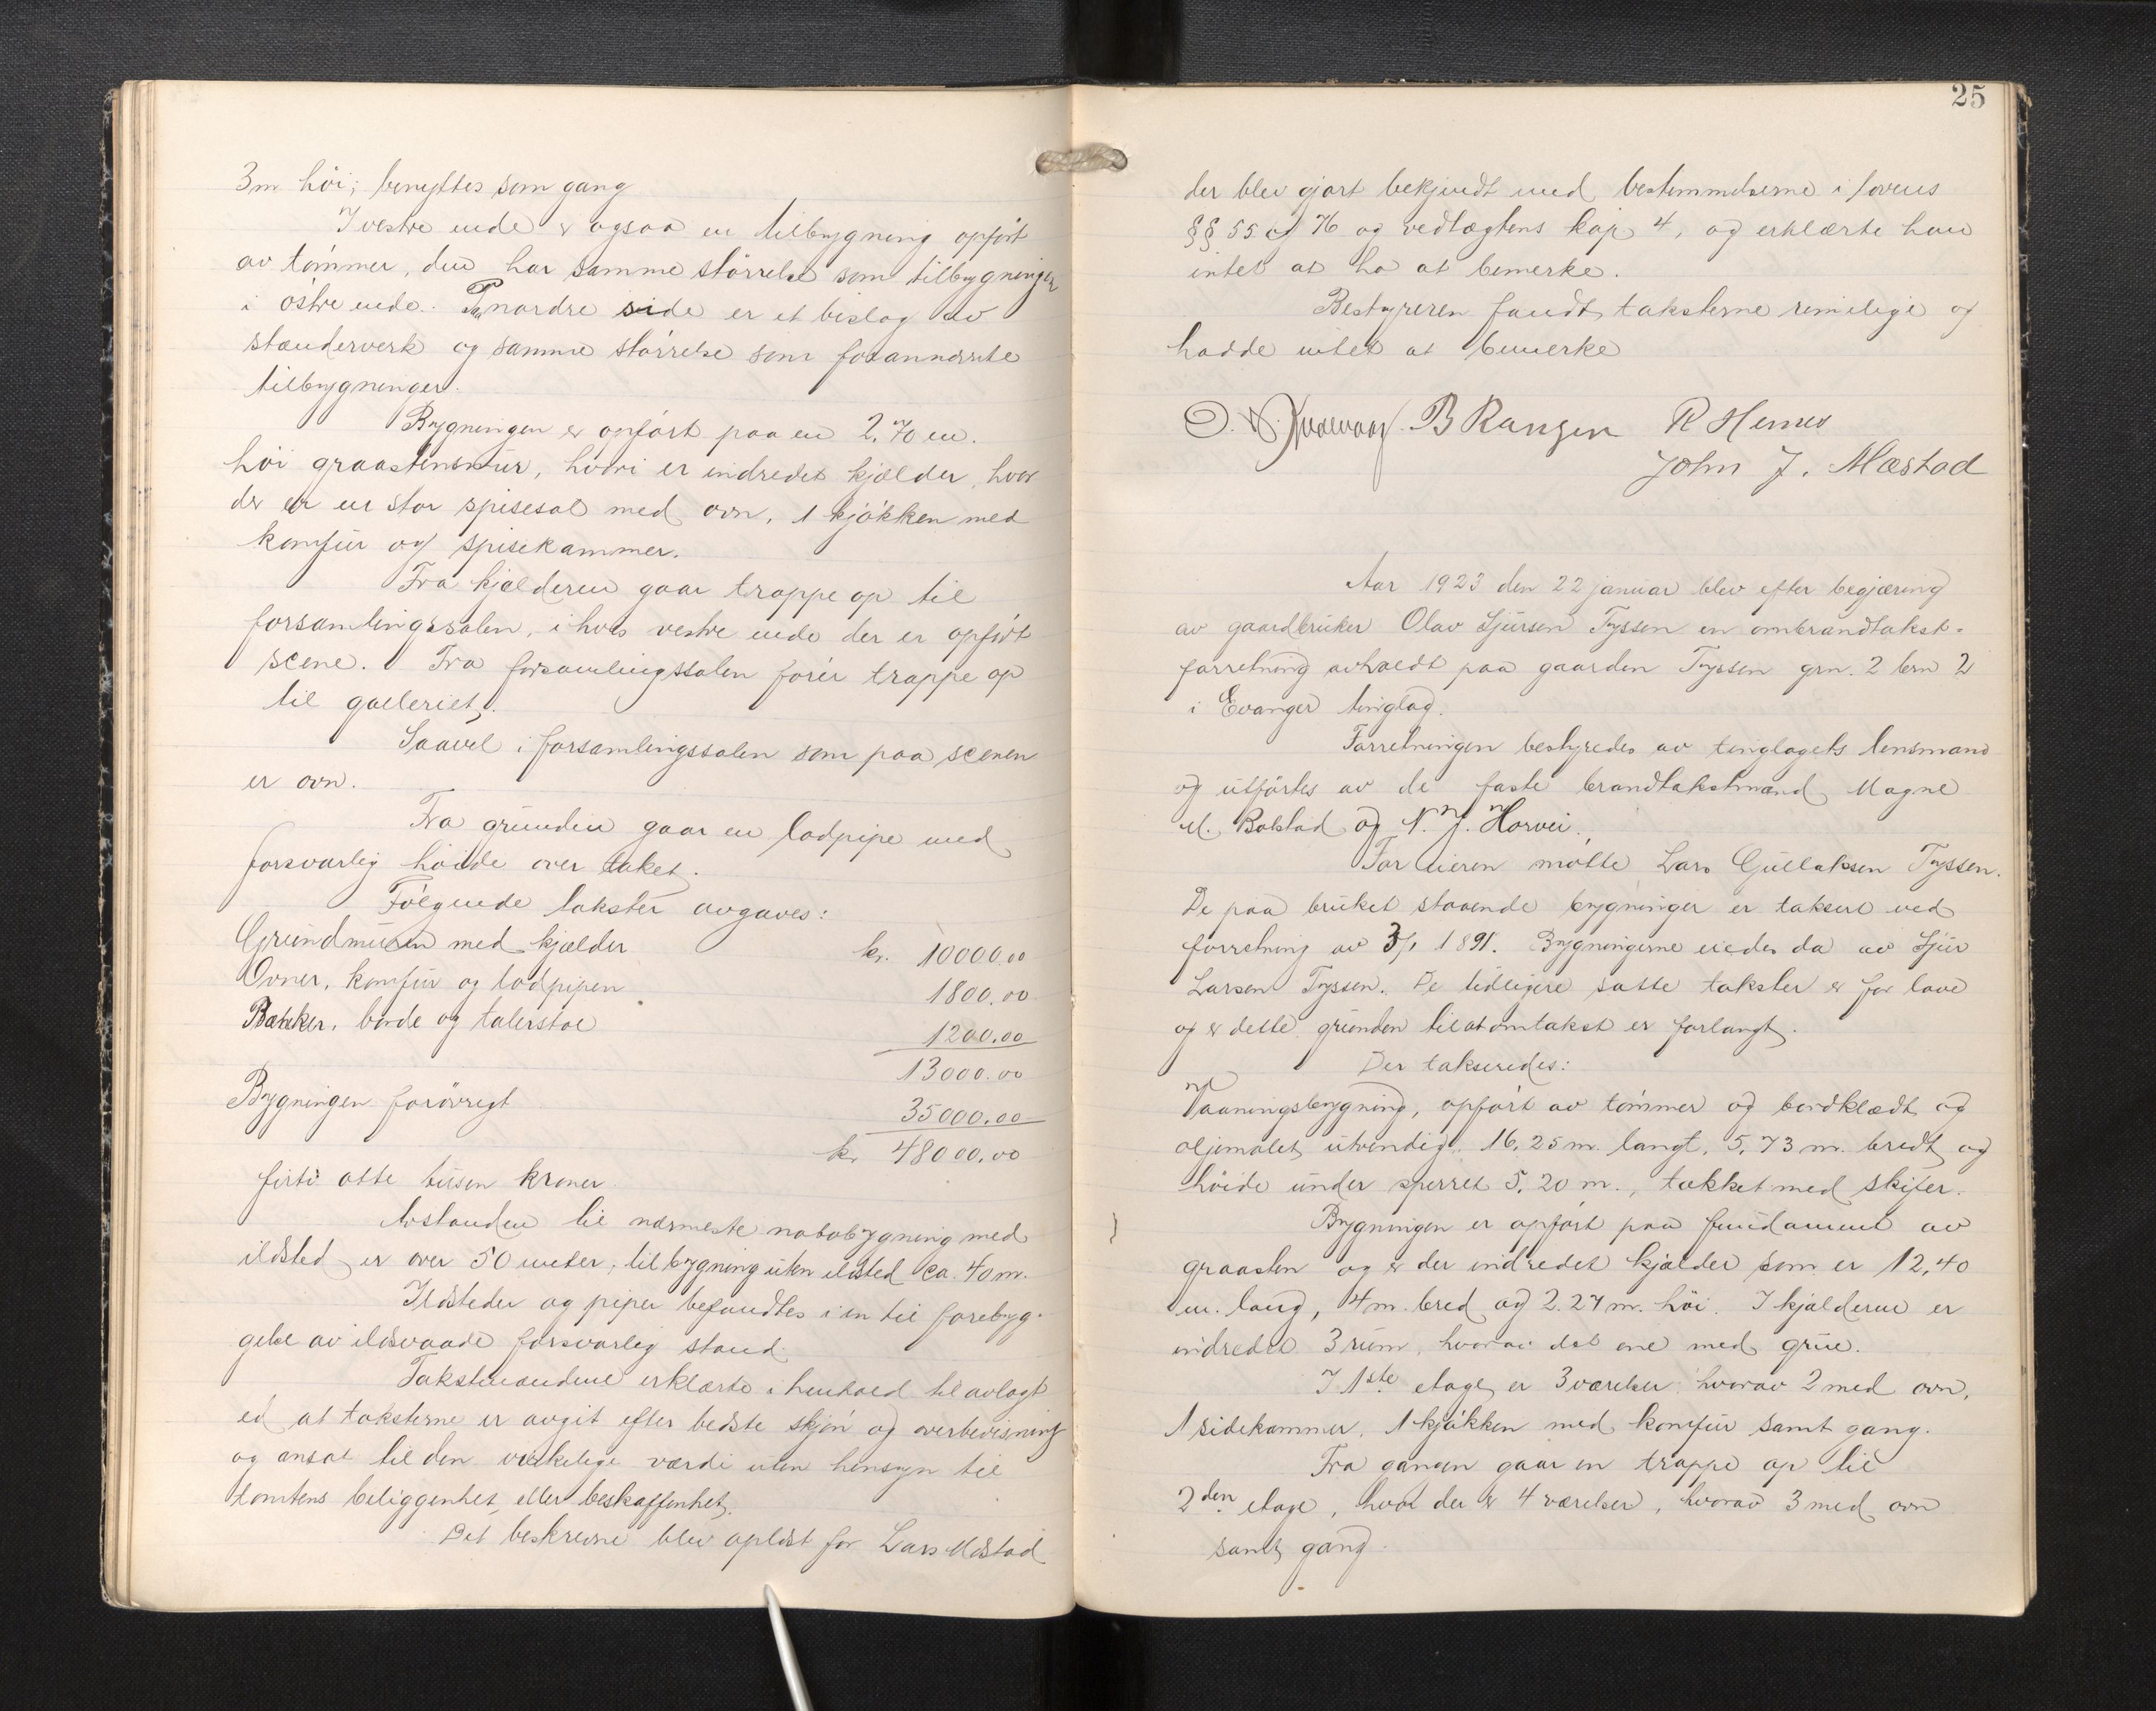 3m höi; benyttes som gang
I vestre ende er ogsaa en tilbygning opført
av tømmer, den har samme størrelse som tilbygningen
i østre ende. Paa nordre side er et bislag av
stænderverk og samme størrelse som forannævnte
tilbygninger.
Bygningen er opført paa en 2,70 m.
høi graastensmur, hvori er indredet kjælder, hvor
der er en stor spisesal med ovn, 1 kjøkken med
komfur og spisekammer.
Fra kjælderen gaar trappe op til
forsamlingssalen, i hvis vestre ende der er opført
scene. Fra forsamlingssalen fører trappe op
til galleriet.
Saavel i forsamlingssalen som paa scenen
er ovn.
Fra grunden gaar en lodpipe med
forsvarlig høide over taket.
Følgende takster avgaves:
Grundmuren med kjælder kr. 10000.00
Ovner, komfur og lodpipen 1800.00
Bænker, borde og talerstol 1200.00
13000.00
Bygningen forøvrigt 35000.00
kr 48000.00
firti otte tusen kroner
Avstanden til nærmeste nabobygning med
ildsted er over 50 meter, til bygning uten ildsted ca. 40 m.
Ildsteder og piper befandtes i en til forebyg-
gelse av ildsvaade forsvarlig stand.
Takstmændene erklærte i henhold til avlagt
ed at taksterne er avgit efter bedste skjøn og overbevisning
og ansat til den virkelige værdi uten hensyn til
tomtens beliggenhet eller beskaffenhet.
Det beskrevne blev oplæst for Lars Mestad
25
der blev gjort bekjendt med bestemmelserne i lovens
§§ 55 og 76 og vedtægtens kap 4, og erklærte han
intet at ha at bemerke.
Bestyreren fandt taksterne rimelige og
hadde intet at bemerke
B Rangen R Hernes
John J. Mæstad
Aar 1923 den 22 januar blev efter begjæring
av gaardbruker Olav Sjursen Tyssen en ombrandtakst-
forretning avholdt paa gaarden Tyssen grn. 2 brn 2
i Evanger tinglag.
Forretningen bestyredes av tinglagets lensmand
og utførtes av de faste brandtakstmænd Magne
M. Bolstad og N. J. Horvei.
For eieren møtte Lars Gullaksen Tyssen.
De paa bruket staaende bygninger er taksert ved
forretning av 3/1 1891. Bygningerne eiedes da av Sjur
Larsen Tyssen. De tidligere satte takster er for lave
og er dette grunden til at omtakst er forlangt.
Der takseredes:
Vaaningsbygning, opført av tømmer og bordklædt og
oljemalet utvendig. 16,25 m. langt, 5,73 m. bredt og
høide under sperret 5,20 m., tækket med skifer.
Bygningen er opført paa fundament av
graasten og er der indredet kjælder som er 12,40
m. lang, 4 m. bred og 2.27 m. høi. I kjælderen er
indredet 3 rum, hvorav det ene med grue.
I 1ste etage er 3 værelser hvorav 2 med ovn,
1 sidekammer, 1 kjøkken med komfur samt gang.
Fra gangen gaar en trappe op til
2den etage, hvor der er 4 værelser, hvorav 3 med ovn
samt gang.